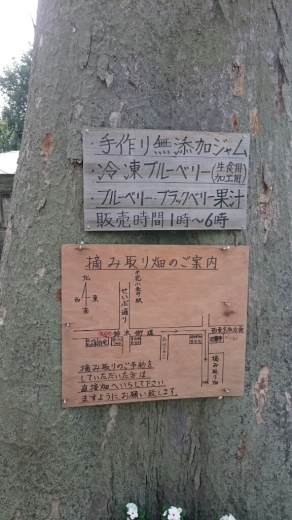 ・手作り無添加ジャム
・冷凍ブルーベリー(生食用 加工用)
・ブルーベリー・ブラックベリー果汁
販売時間1時〜6時
摘み取り畑のご案内
北
西
東
南
花小金井駅
せいぶ通り
鈴木街道
摘み取り畑
摘み取りのご予約を
していただいた方は
直接畑へいらして下さい
ますようにお願い致します。